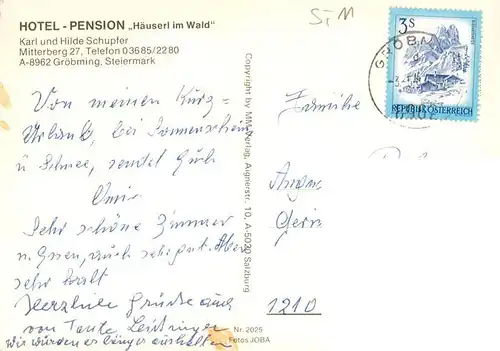 HOTEL - PENSION „Häuserl im Wald"
Karl und Hilde Schupfer
Mitterberg 27, Telefon 03685/2280
A-8962 Gröbming, Steiermark
Von meinen Kurz=
Urlaub, bei Sonnenschein
u Schnee, sendet Euch
Sehr schöne Zimmer
u. Essen, auch sehr gut. Aber
sehr kalt
Herzliche Grüsse auch
von Tante
wir würden es länger aushalten
Copyright by MM-Verlag, Aignerstr. 10, A-5020 Salzburg
Nr. 2025
Fotos JOBA
3S
REPUBLIK ÖSTERREICH
GRÖBM
8962
Familie
1210